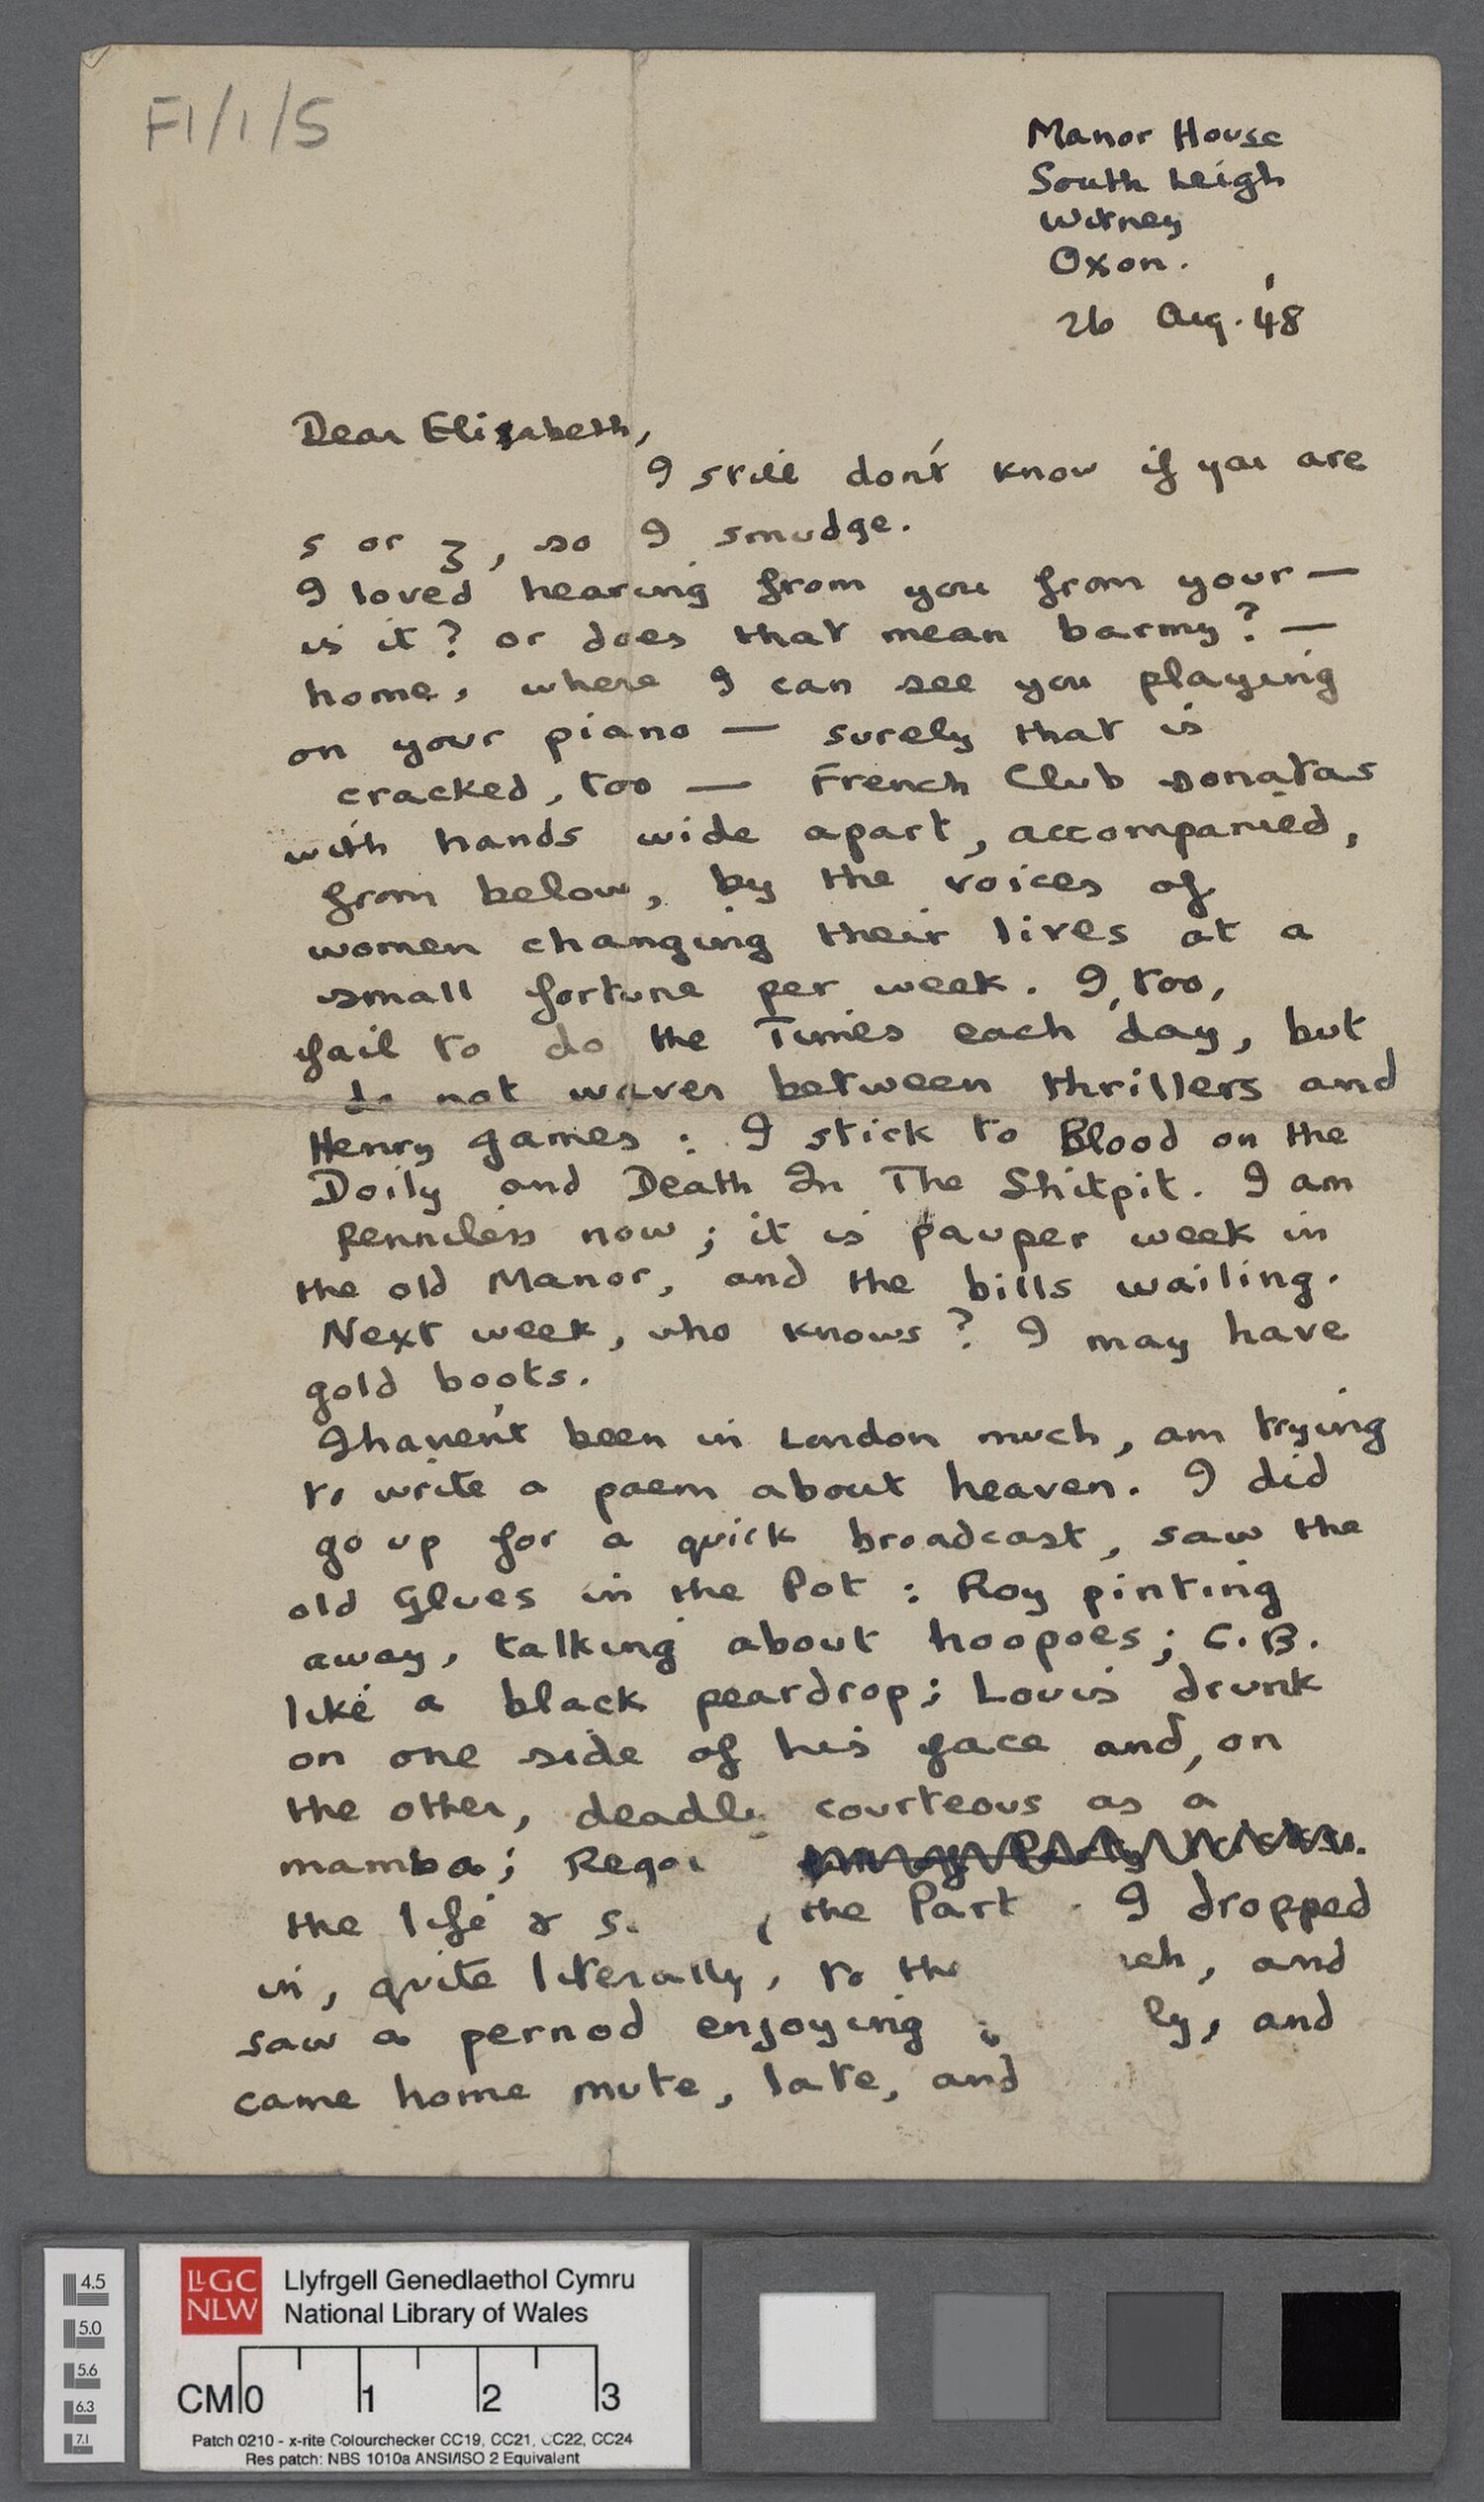 F1/1/5
Manor House
South Leigh
Witney
Oxon.
26 Aug. '48
Dear Elizabeth,
I still don't know if you are
s or z, so I smudge.
I loved hearing from you from your —
is it? or does that mean barmy? —
home, where I can see you playing
on your piano — surely that is
cracked, too — French Club sonatas
with hands wide apart, accompanied,
from below, by the voices of
women changing their lives at a
small fortune per week. I, too,
fail to do the Times each day, but
do not waver between thrillers and
Henry games : I stick to Blood on the
Doily and Death In The Shitpit. I am
penniless now ; it is pauper week in
the old Manor, and the bills wailing.
Next week, who knows? I may have
gold boots.
I haven't been in London much, am trying
to write a poem about heaven. I did
go up for a quick broadcast, saw the
old Glues in the Pot : Roy pinting
away, talking about hoopoes ; C.B.
like a black peardrop ; Louis drunk
on one side of his face and, on
the other, deadly courteous as a
mamba ;
the life & the I dropped
in, quite literally, to the and
saw a pernod enjoying and
came home mute, late, and
4.5
5.0
5.6
6.3
7.1
LLGC
NLW
Llyfrgell Genedlaethol Cymru
National Library of Wales
CM 0 1 2 3
Patch 0210 - x-rite Colourchecker CC19, CC21, CC22, CC24
Res patch: NBS 1010a ANSI/ISO 2 Equivalent